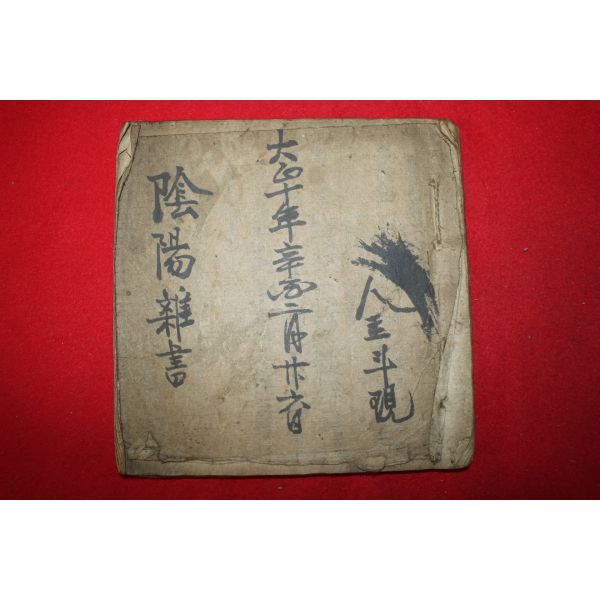 人王斗現
大正十年辛酉二月廿六日
陰陽雜書